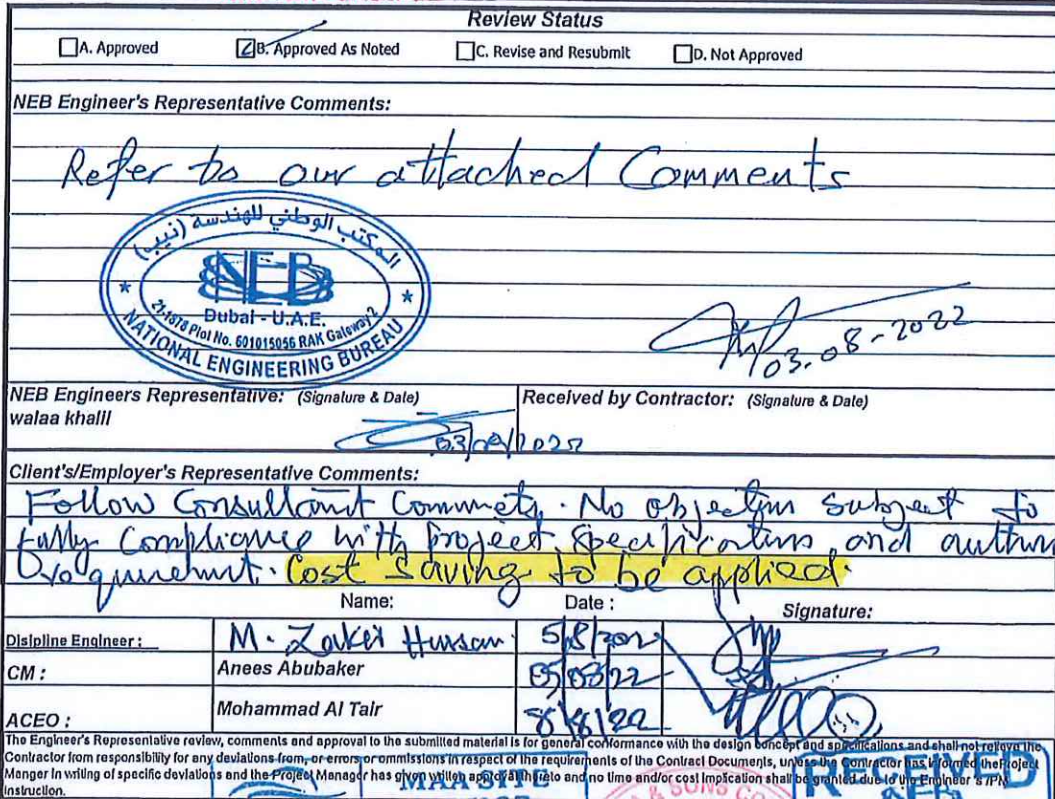 Review Status
A. Approved B. Approved As Noted C. Revise and Resubmit D. Not Approved
NEB Engineer's Representative Comments:
Refer to our attached Comments
المكتب الوطني للهندسة (نيب)
NEB
Dubai - U.A.E.
21-1878 Plot No. 601015056 RAK Gateway 2
NATIONAL ENGINEERING BUREAU
03.08-2022
NEB Engineers Representative: (Signature & Date) Received by Contractor: (Signature & Date)
walaa khalil
Client's/Employer's Representative Comments:
Follow Consultant Commets. No objection subject to
fully Compliance with project specifications and
requirement. Cost Saving to be applied.
Name: Date : Signature:
Disipline Engineer : M. Zaker Hussan 5/8/202
CM : Anees Abubaker 05/08/22
ACEO : Mohammad Al Tair 8/8/22
The Engineer's Representative review, comments and approval to the submitted material is for general conformance with the design concept and specifications and shall not relieve the
Contractor from responsibility for any deviations from, or errors or ommissions in respect of the requirements of the Contract Documents, unless the Contractor has informed theProject
Manger in writing of specific deviations and the Project Manager has given written approval thereto and no time and/or cost implication shall be granted due to the Engineer's /PM
Instruction.
MAA SITE
& SONS CO
RECEIVED